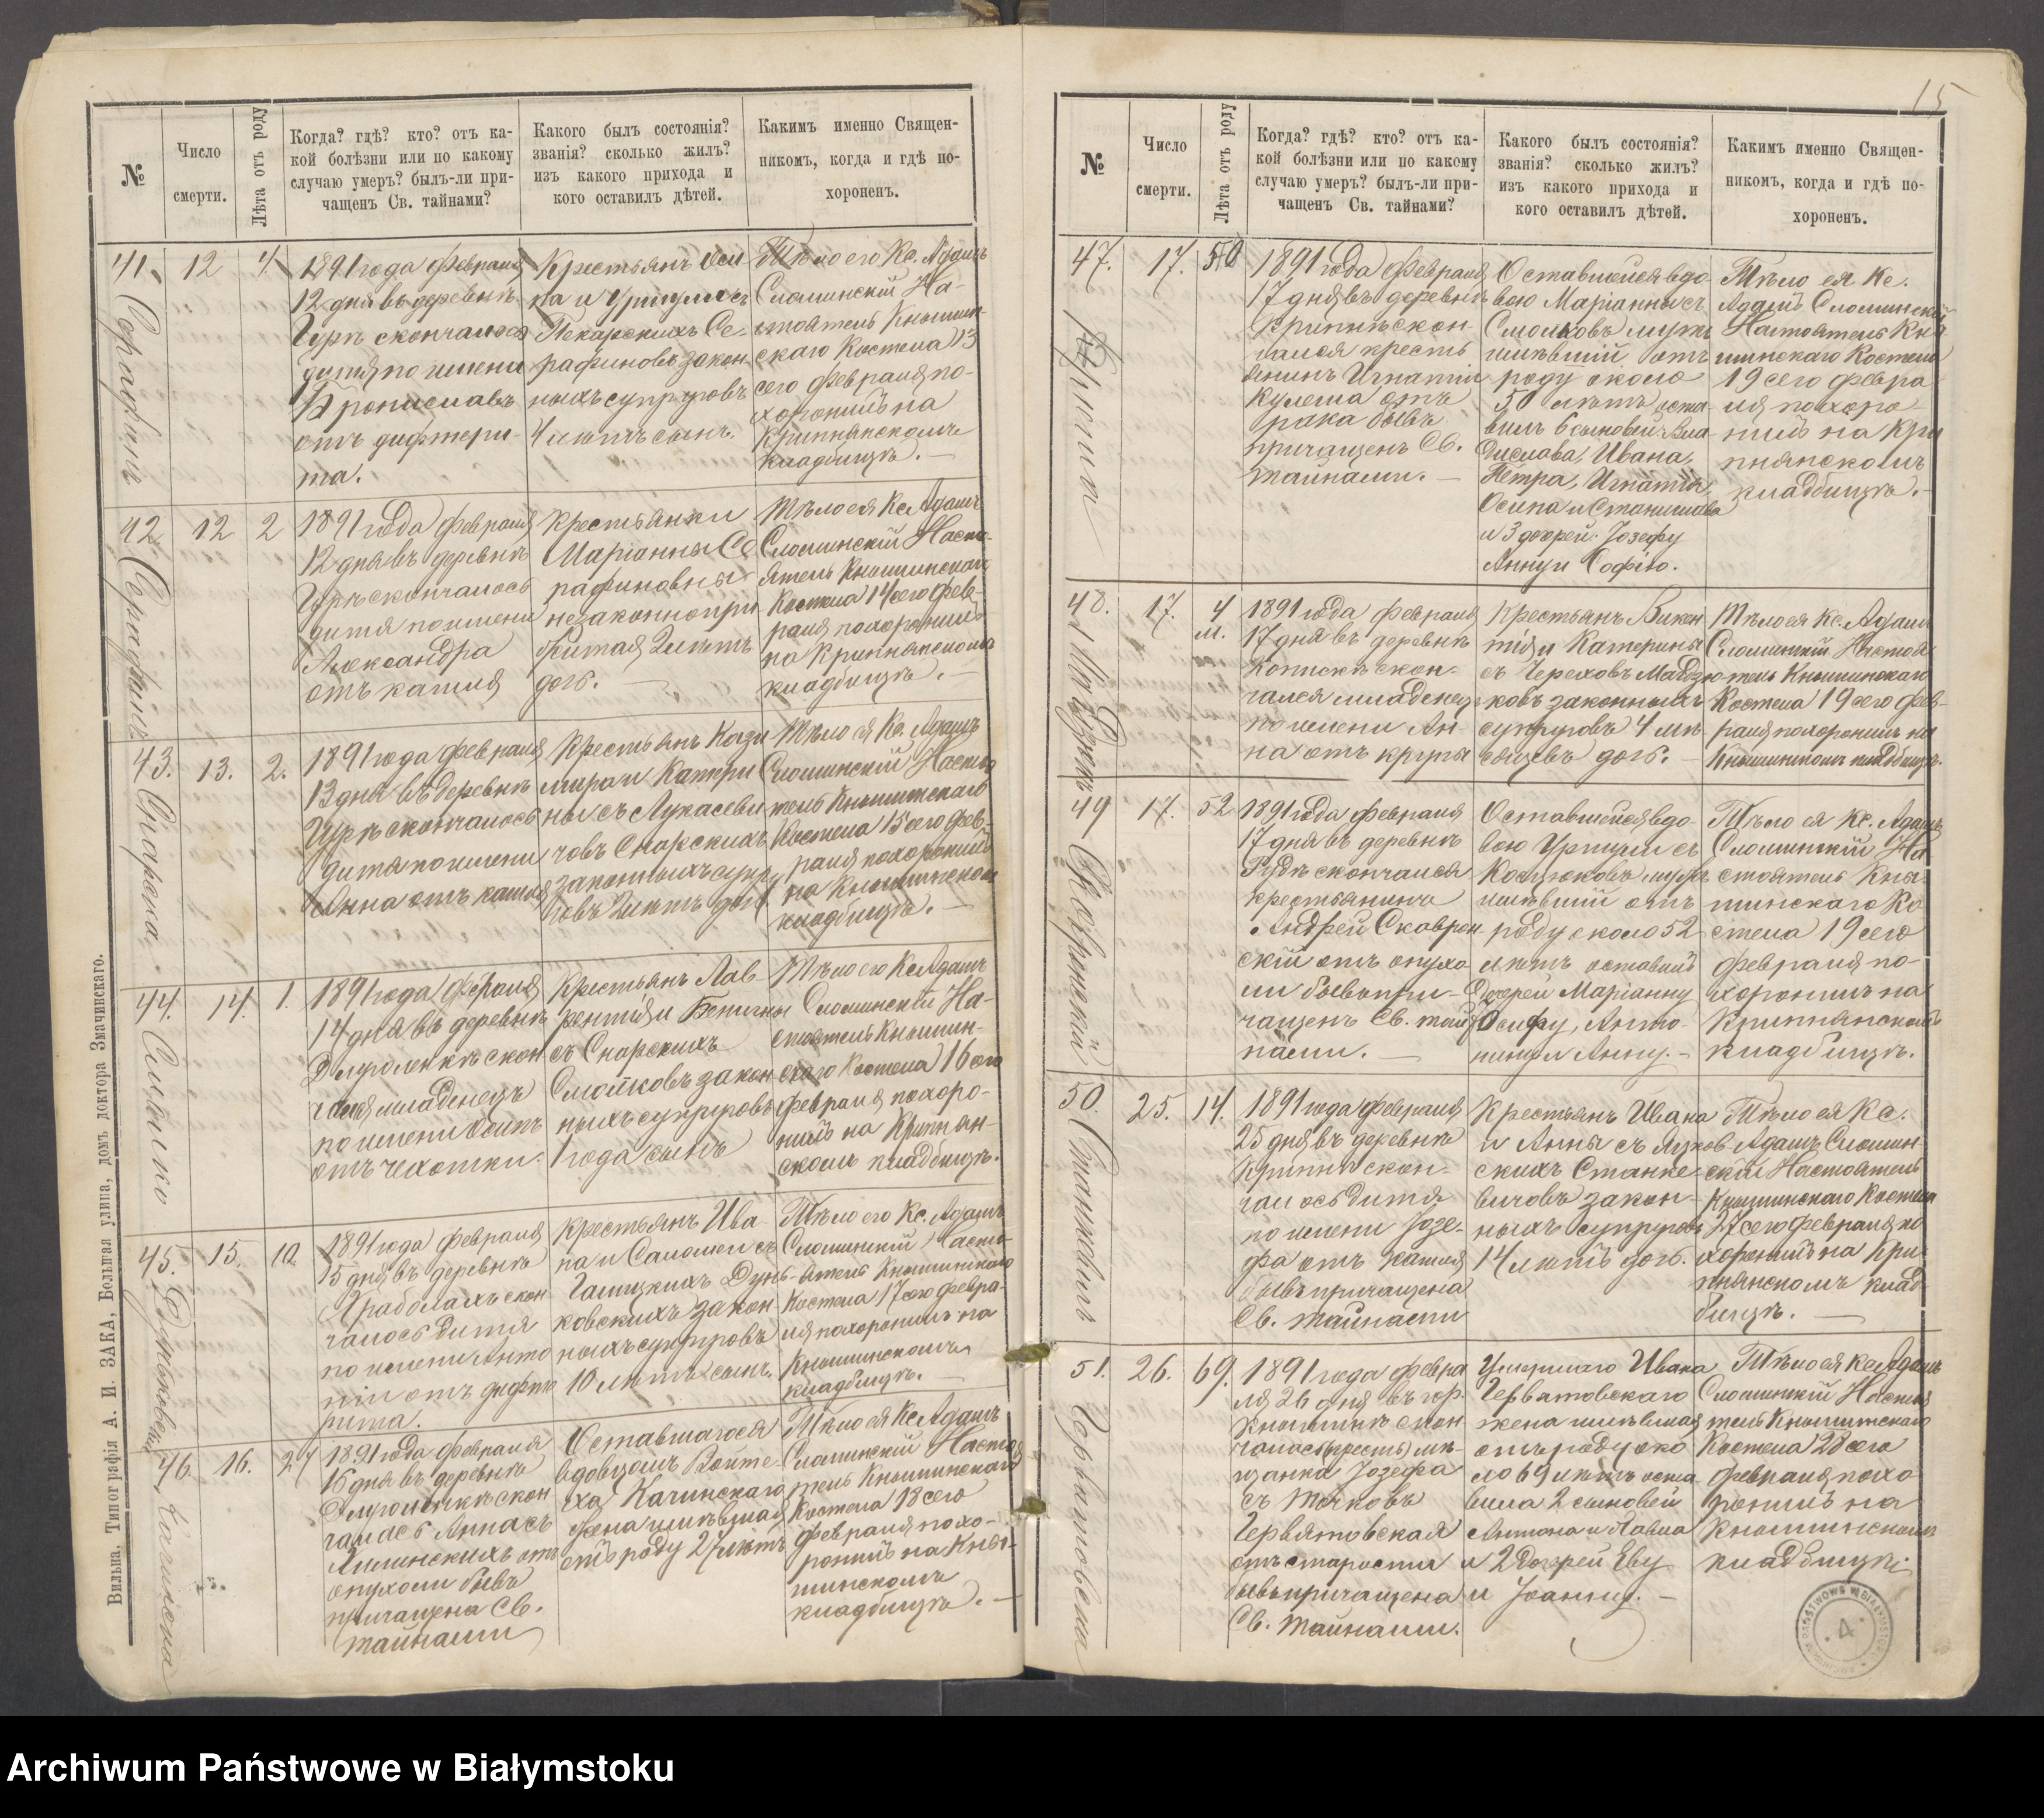 15
№
Число
смерти.
Лѣта отъ роду
Когда? гдѣ? кто? отъ ка-
кой болѣзни или по какому
случаю умеръ? былъ-ли при-
чащенъ Св. тайнами?
Какого былъ состоянія?
званія? сколько жилъ?
изъ какого прихода и
кого оставилъ дѣтей.
Какимъ именно Священ-
никомъ, когда и гдѣ по-
хороненъ.
41
Серафинъ
12
4.
1891 года Февраля
12 дня въ деревнѣ
Гурѣ скончалося
дитя по имени
Брониславъ
отъ дифтери-
та.
Крестьянъ Оси
па и Уршули съ
Пекарскихъ Се-
рафиновъ закон
ныхъ супруговъ
4 лѣтъ сынъ.
Тѣло его Кс. Адамъ
Сломинскій На-
стоятель Кнышин-
скаго Костела 13
сего февраля по-
хоронилъ на
Крыпнянскомъ
кладбищѣ. —
42
Серафинъ
12
2
1891 года Февраля
12 дня въ деревнѣ
Гурѣ скончалось
дитя по имени
Александра
отъ кашля
Крестьянки
Маріанны Се
рафиновны
незаконнопри
житая 2 лѣтъ
дочь. —
Тѣло ея Кс Адамъ
Сломинскій Насто-
ятель Кнышинскаго
Костела 14 сего фев-
раля похоронилъ
на Крыпнянскомъ
кладбищѣ. —
43.
Снарска
13.
2.
1891 года Февраля
13 дня въ деревнѣ
Гурѣ скончалось
дитя по имени
Анна отъ кашля
Крестьянъ Кази
мира и Катери
ны съ Лукасеви
човъ Снарскихъ
законныхъ супру
говъ 2 лѣтъ дочь
Тѣло ея Кс. Адамъ
Сломинскій Настоя
тель Кнышинскаго
Костела 15 сего фев-
раля похоронилъ
на Кнышинскомъ
кладбищѣ. —
44.
14.
1.
1891 года Февраля
14 дня въ деревнѣ
скон
чался младенецъ
по имени Осипъ
отъ чехотки.
Крестьянъ Лав-
рентія и Бенигны
съ Снарскихъ
закон
ныхъ супруговъ
1 года сынъ
Тѣло его Кс Адамъ
Сломинскій На-
стоятель Кнышин-
скаго Костела 16 сего
февраля похоро-
нилъ на Крыпнян-
скомъ кладбищѣ.
45.
Дуньковскій
15.
10.
1891 года Февраля
15 дня въ деревнѣ
Граболахъ скон
чалось дитя
по имени Анто
ній отъ дифте
рита.
Крестьянъ Ива-
на и Саломеи съ
Галицкихъ Дунь-
ковскихъ закон-
ныхъ супруговъ
10 лѣтъ сынъ.
Тѣло его Кс. Адамъ
Сломинскій Насто-
ятель Кнышинскаго
Костела 17 сего февра-
ля похоронилъ на
Кнышинскомъ
кладбищѣ. —
46.
Качинска
16.
27
1891 года Февраля
16 дня въ деревнѣ
скон
чалась Анна съ
отъ
опухоли бывъ
причащена Св.
тайнами
Оставшагося
вдовцомъ Войте-
ха Качинскаго
жена имѣвшая
отъ роду 27 лѣтъ
Тѣло ея Кс Адамъ
Сломинскій Настоя
тель Кнышинскаго
Костела 18 сего
февраля похо-
ронилъ на Кны-
шинскомъ
кладбищѣ. —
Вильна. Типографія А. И. ЗАКА, Большая улица, домъ доктора Змачинскаго.
№
Число
смерти.
Лѣта отъ роду
Когда? гдѣ? кто? отъ ка-
кой болѣзни или по какому
случаю умеръ? былъ-ли при-
чащенъ Св. тайнами?
Какого былъ состоянія?
званія? сколько жилъ?
изъ какого прихода и
кого оставилъ дѣтей.
Какимъ именно Священ-
никомъ, когда и гдѣ по-
хороненъ.
47.
17.
50
1891 года Февраля
17 дня въ деревнѣ
Крыпнѣ скон-
чался кресть
янинъ Игнатій
Кулеша отъ
рака бывъ
причащенъ Св.
тайнами. —
Оставшейся вдо-
вою Маріанны съ
мужъ
имѣвшій отъ
роду около
50 лѣтъ оста-
вилъ 6 сыновей Вла-
дислава, Ивана,
Петра, Игнатія,
Осипа и Станислава
и 3 дочерей: Іозефу
Анну и Софію.
Тѣло ея Кс.
Адамъ Сломинскій
Настоятель Кны
шинскаго Костела
19 сего февра
ля похоро-
нилъ на Кры
пнянскомъ
кладбищѣ. —
48.
17.
4
м.
1891 года Февраля
17 дня въ деревнѣ
скон-
чался младенецъ
по имени Ан-
на отъ крупа
Крестьянъ Викен
тія и Катерины
съ
законныхъ
супруговъ 4 мѣ
сяцевъ дочь. —
Тѣло ея Кс. Адамъ
Сломинскій Настоя
тель Кнышинскаго
Костела 19 сего фев-
раля похоронилъ на
Кнышинскомъ кладбищѣ.
49
Скавронскій
17.
52
1891 года Февраля
17 дня въ деревнѣ
Гурѣ скончался
крестьянинъ
Андрей Скаврон
скій отъ опухо
ли бывъ при-
чащенъ Св. тай
нами. —
Оставшейся вдо-
вою Уршули съ
Косцюковъ мужъ
имѣвшій отъ
роду около 52
лѣтъ оставилъ
дочерей Маріанну
Осифу, Анто-
нину и Анну. —
Тѣло ея Кс. Адамъ
Сломинскій На
стоятель Кны-
шинскаго Ко
стела 19 сего
февраля по-
хоронилъ на
Крыпнянскомъ
кладбищѣ.
50.
Станкевичъ
25.
14.
1891 года Февраля
25 дня въ деревнѣ
Крыпнѣ скон-
чалось дитя
по имени Іозе-
фа отъ кашля
бывъ причащена
Св. тайнами
Крестьянъ Ивана
и Анны съ
скихъ Станке-
вичовъ закон-
ныхъ супруговъ
14 лѣтъ дочь.
Тѣло ея Кс.
Адамъ Сломин-
скій Настоятель
Кнышинскаго Костела
27 сего февраля по
хоронилъ на Кры-
пнянскомъ клад-
бищѣ. —
51.
Червятовска
26.
69.
1891 года Февра
ля 26 дня въ гор.
Кнышинѣ скон
чалась мѣ-
щанка Іозефа
съ
Червятовская
отъ старости
бывъ причащена
Св. Тайнами.
Умершаго Ивана
Червятовскаго
жена имѣвшая
отъ роду око
ло 69 лѣтъ оста
вила 2 сыновей
Антона и Павла
и 2 дочерей Еву
и Іоанну. —
Тѣло ея Кс Адамъ
Сломинскій Настоя
тель Кнышинскаго
Костела 28 сего
февраля похо
ронилъ на
Кнышинскомъ
кладбищѣ
4
Archiwum Państwowe w Białymstoku